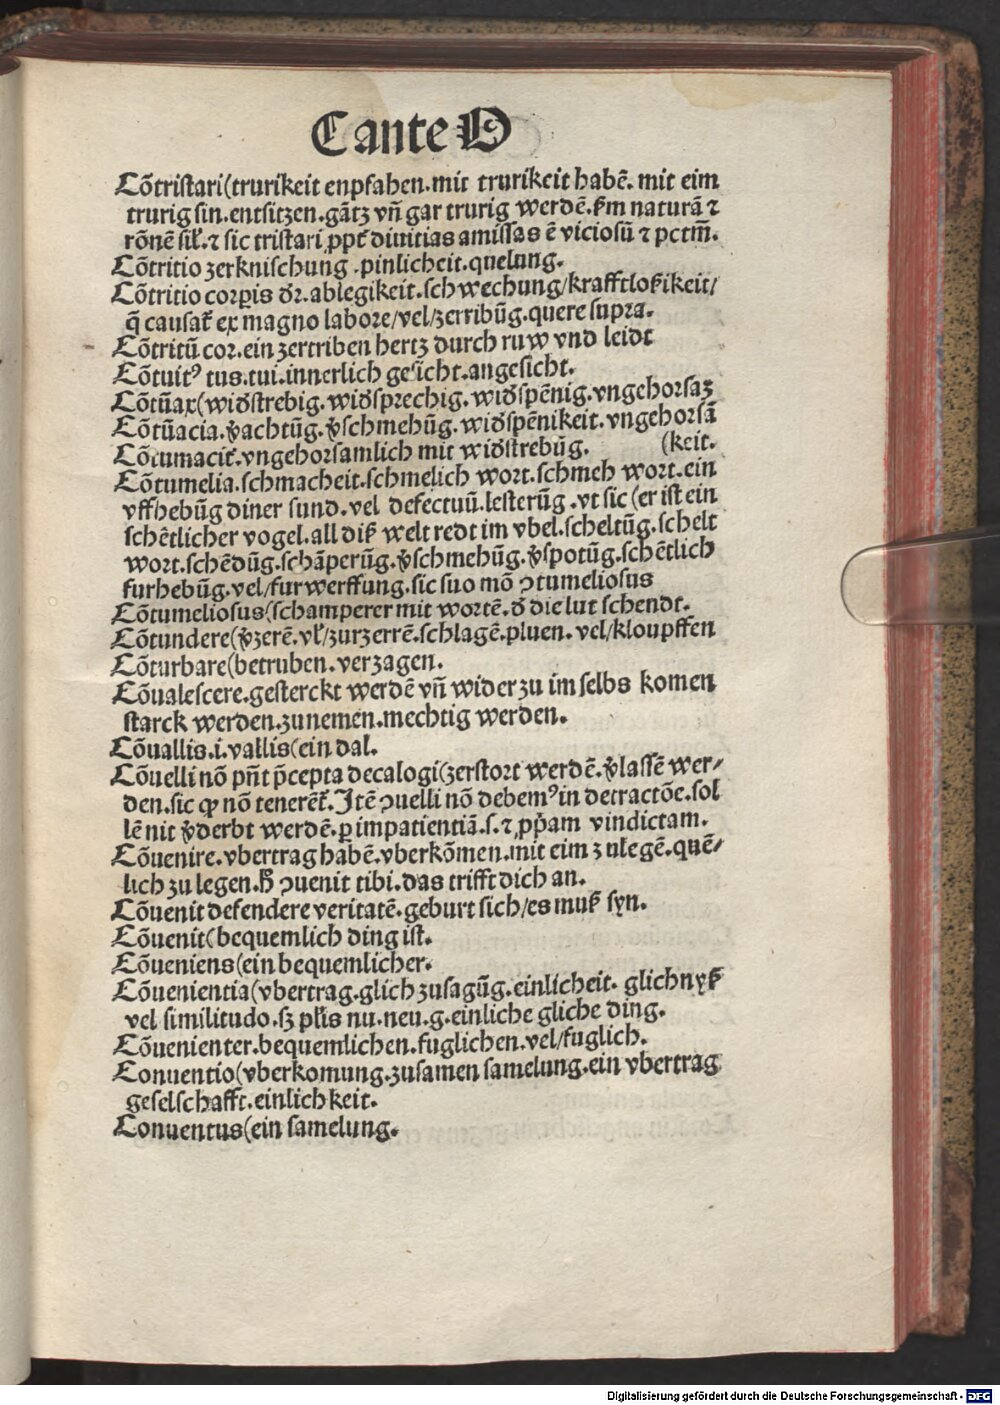 C ante O
Cõtristari(trurikeit enpfahen.mit trurikeit habẽ. mit eim
trurig sin.entsitzen.gãtz vñ gar trurig werdẽ.ẜm naturã ⁊
rõnẽ sił.⁊ sic tristari ꝓpt̃ diuitias amissas ẽ viciosũ ⁊ pctm̃.
Cõtritio zerknischung .pinlicheit.quelung.
Cõtritio corꝑis dr̃.ablegikeit.schwechung/krafftloßikeit/
q̃ causat̃ ex magno labore/vel/zerribũg.quere supra.
Cõtritũ cor.ein zertriben hertz durch ruw vnd leidt
Cõtuitꝰ tus.tui.innerlich gesicht.angesicht.
Cõtũax(wid̃strebig.wid̃sprechig.wid̃spẽnig.vngehorsaꝫ
Cõtũacia.ṽachtũg.ṽschmehũg.wid̃spẽnikeit.vngehorsã
Cõtumacit̃.vngehorsamlich mit wid̃strebũg. (keit.
Cõtumelia.schmacheit.schmelich wort.schmeh wort.ein
vffhebũg diner sund.vel defectuũ.lesterũg .vt sic (er ist ein
schẽtlicher vogel.all diß welt redt im vbel.scheltũg.schelt
wort.schẽdũg.schãperũg.ṽschmehũg.ṽspotũg.schẽtlich
furhebũg.vel/furwerffung.sic suo mõ ↄtumeliosus
Cõtumeliosus(schamperer mit wortẽ.d̃ die lut schendt.
Cõtundere(ṽzerẽ.vł/zurzerrẽ.schlagẽ.pluen.vel/kloupffen
Cõturbare(betruben.verzagen.
Cõualescere.gesterckt werdẽ vñ wider zu im selbs komen
starck werden.zunemen.mechtig werden.
Cõuallis.i.vallis(ein dal.
Cõuelli nõ pñt p̃cepta decalogi(zerstort werdẽ.ṽlassẽ wer/
den.sic ꝙ nõ tenerẽt̃.Itẽ ↄuelli nõ debemꝰ in detractõe.sol
lẽ nit ṽderbt werdẽ.ꝑ impatientiã.s.⁊ ꝓp̃am vindictam.
Cõuenire.vbertrag habẽ.vberkõmen.mit eim zulegẽ.quẽ/
lich zu legen.h̃ ↄuenit tibi.das trifft dich an.
Cõuenit defendere veritatẽ.geburt sich/es muß syn.
Cõuenit(bequemlich ding ist.
Cõueniens(ein bequemlicher.
Cõuenientia(vbertrag.glich zusagũg.einlicheit. glichnyß
vel similitudo.sꝫ pl̃is nu.neu.g.einliche gliche ding.
Cõuenienter.bequemlichen.fuglichen.vel/fuglich.
Conuentio(vberkomung.zusamen samelung.ein vbertrag
geselschafft.einlichkeit.
Conuentus(ein samelung.
Digitalisierung gefördert durch die Deutsche Forschungsgemeinschaft - DFG